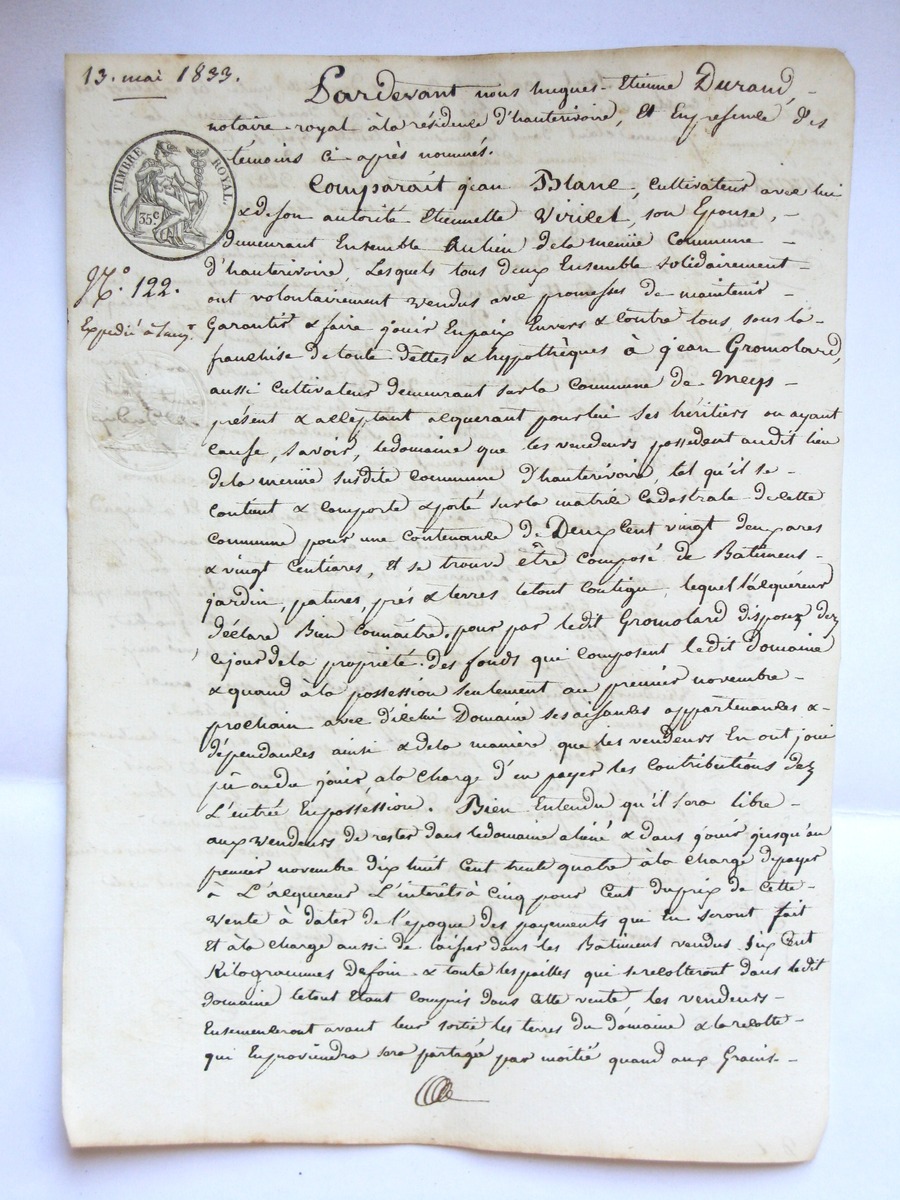 13. mai 1833.
Pardevant nous hugues-Etienne Durand,
notaire royal à la résidence d'hauterivoire, Et En presence des
témoins ci-après nommés.
TIMBRE ROYAL.
35c
Comparait jean Blanc, cultivateur avec lui
& de son autorité Etiennette Viricel, son Epouse,
demeurant Ensemble au lieu de la menüe Commune
d'hauterivoire, Lesquels tous deux Ensemble solidairement
N.º 122.
ont volontairement vendus avec promesses de maintenir
Expedié à l'acq.r
Garantir & faire jouir En paix Envers & Contre tous, sous la
franchise de toute dettes & hypothèques à jean Gromolard,
aussi cultivateur demeurant sur la Commune de Meys
présent & acceptant acquerant pour lui ses héritiers ou ayant
cause, savoir, le domaine que les vendeurs possèdent audit lieu
de la menüe susdite commune d'hauterivoire, tel qu'il se
contient & comporte & porté sur la matrice cadastrale de cette
commune pour une contenance de Deux Cent vingt deux ares
& vingt centiares, Et se trouve être composé de Batimens
jardin, patures, prés & terres le tout contigu, lequel l'acquéreur
déclare Bien connaître, pour par ledit Gromolard disposer dez
ce jour de la propriété des fonds qui composent le dit Domaine
& quand à la possession seulement au premier novembre
prochain avec dicelui Domaine ses aisances appartenances &
dépendances ainsi & de la manière que les vendeurs En ont joui
ou du jouir à la charge d'en payer les contributions dez
L'entrée En possession. Bien Entendu qu'il sera libre
aux vendeurs de rester dans le domaine aliéné & d'en jouir jusqu'au
premier novembre dix huit Cent trente quatre à la charge de payer
à L'acquereur L'interêts à cinq pour Cent du prix de cette
vente à dater de l'époque des payements qui en seront fait
Et à la charge aussi de laisser dans les Batimens vendus six Cent
Kilogrammes de foin & toute les pailles qui se recolteront dans ledit
domaine le tout Etant compris dans cette vente les vendeurs
Ensemenceront avant leur sortie les terres du domaine & la recolte
qui En proviendra sera partagée par moitié quand aux Grains